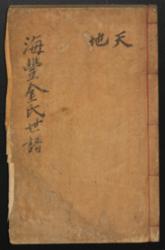 天地
海豐金氏世譜